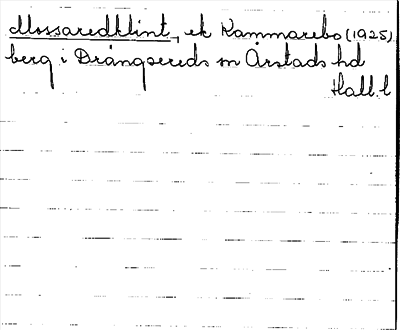 Mossaredklint, ek Kammarebo (1925)
berg i Drängsereds sn Årstads hd
Hall. l